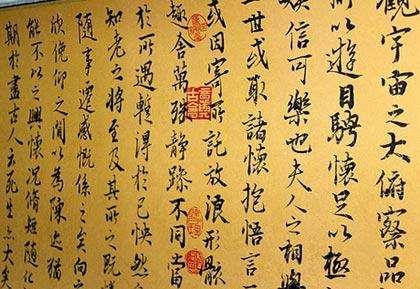 觀宇宙之大俯察品
所以遊目騁懷足以極
娛信可樂也夫人之相與
一世或取諸懷抱悟言一
或因寄所託放浪形骸
趣舍萬殊靜躁不同當
於所遇暫得於己怏然
知老之將至及其所之既
隨事遷感慨係之矣向之
欣俛仰之間以為陳迹猶
能不以之興懷況脩短隨化
期於盡古人云死生亦大矣